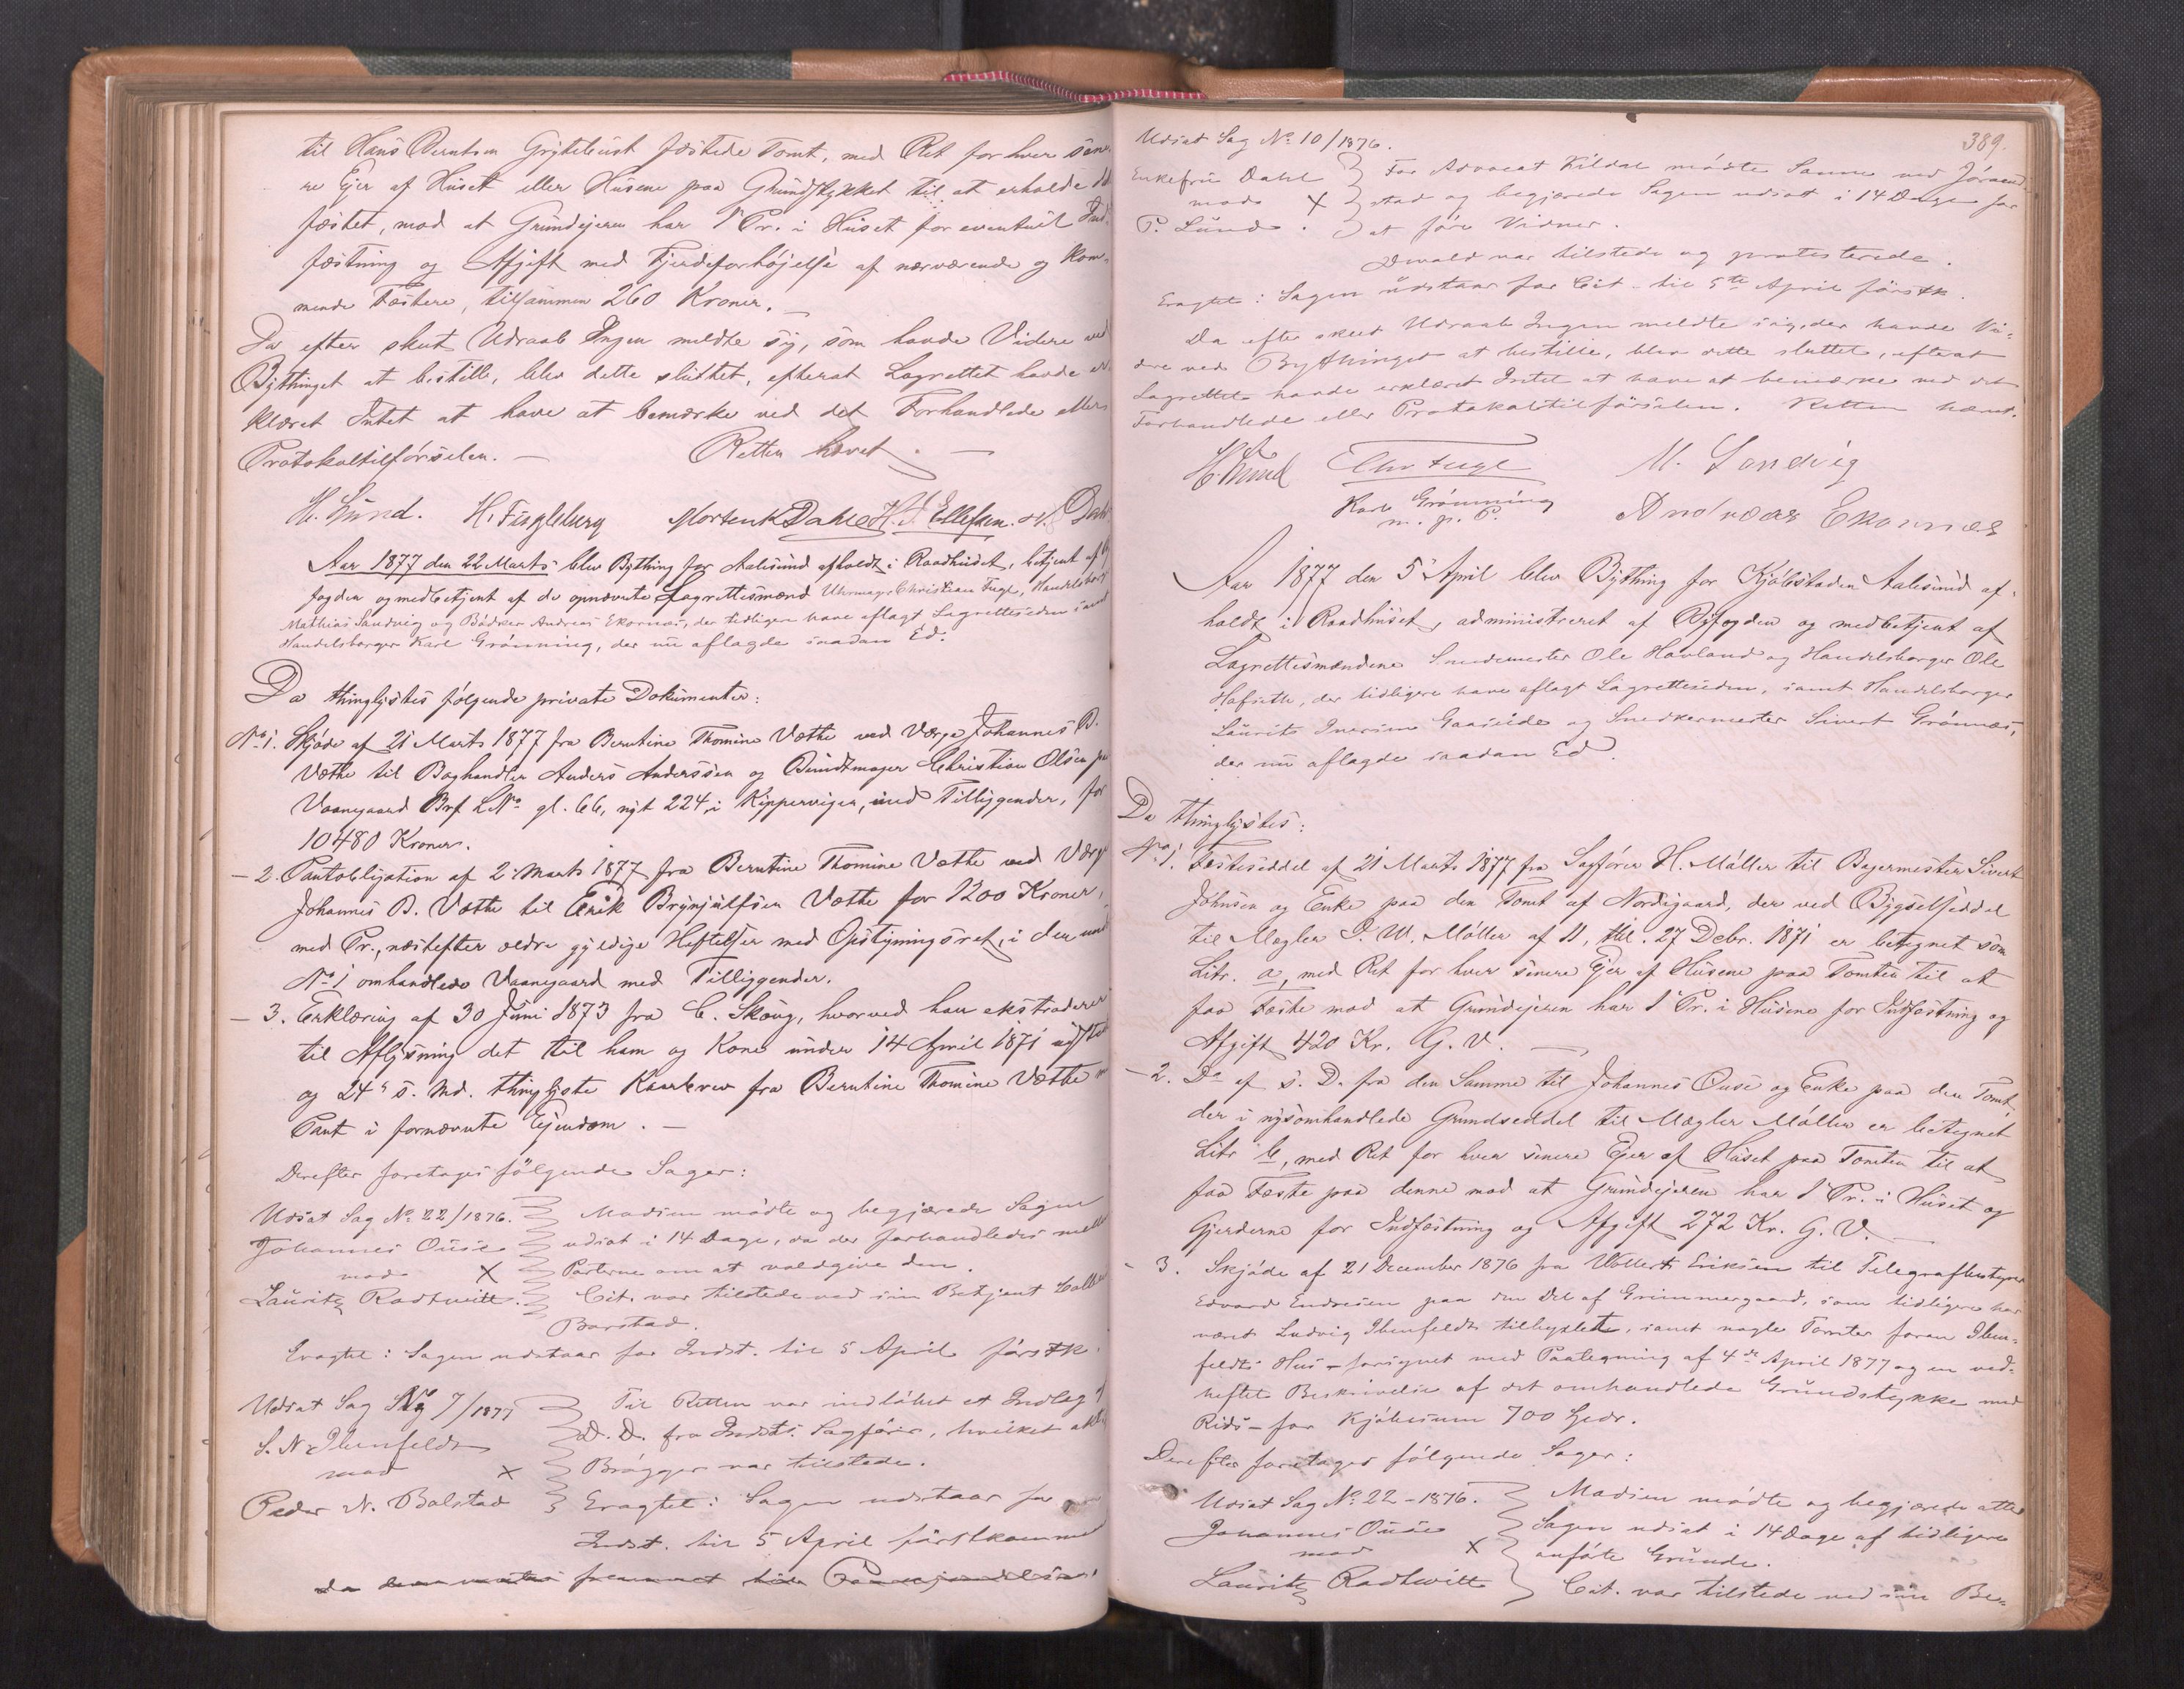 til Hans Berntsen Grytebust fæstede Tomt, med Ret for hver sene-
re Ejer af Huset eller Husene paa Grundstykket til at erholde
fæstet, mod at Grundejeren har 1 Pr. i Huset for eventuel Ind-
fæstning og Afgift med Fjerdeforhøjelse af nærværende og kom-
mende Fæstere, tilsammen 260 Kroner.
Da efter skeet Udraab Ingen meldte sig, som havde Videre ved
Bythinget at bestille, blev dette sluttet, efterat Lagrettet havde er-
klæret Intet at have at bemærke ved det Forhandlede eller
Protokoltilførselen. — Retten hævet. —
H. Lund. H. Fingleburg Morten K Dahle H. J. Ellefsen. N. Dahl
Aar 1877 den 22 Marts blev Bything for Aalesund afholdt i Raadhuset, betjent af By-
fogden og medbetjent af de opnævnte Lagrettesmænd Uhrmager Christian Fugl, Handelsborger
Mathias Sandvig og Bødker Andreas Ekornæs, der tidligere have aflagt Lagretteseden samt
Handelsborger Karl Grønning, der nu aflagde saadan Ed.
Da thinglystes følgende private Dokumenter:
No 1. Skjøde af 21 Marts 1877 fra Berntine Thomine Vatte ved Værge Johannes B.
Vatte til Boghandler Anders Anderssen og Bundtmager Christian Olsen paa
Vaaningsgaard Brf. L No gl. 66, nyt 224, i Kippervigen, med Tilliggender, for
10480 Kroner.
— 2. Pantobligation af 2 Marts 1877 fra Berntine Thomine Vatte ved Værge
Johannes B. Vatte til Erik Brynjulfsen Vatte for 1200 Kroner,
med Pr., næstefter ældre gyldige Heftelser med Opstigningsret, i den und
No 1 omhandlede Vaaningsgaard med Tilliggender.
— 3. Erklæring af 30 Juni 1873 fra C. Skoug, hvorved han ekstraderer
til Aflysning det til ham og Kone under 14 April 1871 udstedte
og 24 s. Md. thinglyste Kaarbrev fra Berntine Thomine Vatte m
Pant i fornævnte Ejendom. —
Derefter foretages følgende Sager:
Udsat Sag No 22/1876. Madsen mødte og begjærede Sagen
Johannes Ouse udsat i 14 Dage, da der forhandledes mellem
mod X Parterne om at voldgive den.
Lauritz Rodtwitt. Cit. var tilstede ved sin Betjent
Barstad.
Eragtet: Sagen udstaar for Indst. til 5 April førstk.
Udsat Sag No 7/1877 Til Retten var indløbet et Indlæg af
S. N. Ibenfeldt D. D. fra Indst. Sagfører, hvilket
mod X Brøgger var tilstede.
Peder N. Bolstad Eragtet: Sagen udstaar for
Indst. til 5 April førstkommende
389.
Udsat Sag No 10/1876.
Enkefru Dahl For Advocat Kildal mødte Samme ved Jørgen-
mod X stad og begjærede Sagen udsat i 14 Dage for
P. Lund. at føre Vidner.
Devold var tilstede og protesterede.
Eragtet: Sagen udstaar for Cit. til 5te April førstk.
Da efter skeet Udraab Ingen meldte sig, der havde Vi-
dere ved Bythinget at bestille, blev dette sluttet, efterat
Lagrettet havde erklæret Intet at have at bemærke ved det
Forhandlede eller Protokoltilførselen. Retten hævet.
H. Lund Chr Fugl M. Sandvig
Karl Grønning Andreas Ekornæs
m. p. P.
Aar 1877 den 5 April blev Bything for Kjøbstaden Aalesund af-
holdt i Raadhuset, administreret af Byfogden og medbetjent af
Lagrettesmændene Snedkermester Ole Havland og Handelsborger Ole
Hafsæth, der tidligere have aflagt Lagretteseden, samt Handelsborger
Laurits Iversen Gaaseide og Snedkermester Sivert Grønnæs,
der nu aflagde saadan Ed.
Da thinglystes:
No 1. Fæsteseddel af 21 Marts 1877 fra Sagfører H. Møller til Bagermester Sivert
Johnsen og Enke paa den Tomt af Nordigaard, der ved Bygselseddel
til Mægler P. W. Møller af 11, thl. 27 Decbr. 1871 er betegnet som
Litr. a, med Ret for hver senere Ejer af Husene paa Tomten til at
faa Fæste mod at Grundejeren har 1 Pr. i Husene for Indfæstning og
Afgift 420 Kr. G. V. —
— 2. Do af s. D. fra den Samme til Johannes Ouse og Enke paa den Tomt,
der i nysomhandlede Grundseddel til Mægler Møller er betegnet
Litr b, med Ret for hver senere Ejer af Huset paa Tomten til at
faa Fæste paa denne mod at Grundejeren har 1 Pr. i Huset og
Gjerderne for Indfæstning og Afgift 272 Kr. G. V. —
- 3. Skjøde af 21 December 1876 fra Wollert Eriksen til Telegrafbestyrer
Edvard Endresen paa den Del af Grimmergaard, som tidligere har
været Ludvig Ibenfeldt tilbyxlet, samt nogle Tomter foran Iben-
feldts Hus - forsynet med Paategning af 4de April 1877 og en ved-
heftet Beskrivelse af det omhandlede Grundstykke med
Rids - for Kjøbesum 700 Spdr.
Derefter foretages følgende Sager:
Udsat Sag No 22-1876. Madsen mødte og begjærede atter
Johannes Ouse Sagen udsat i 14 Dage af tidligere
mod X anførte Grunde.
Lauritz Rodtwitt Cit. var tilstede ved sin Be-